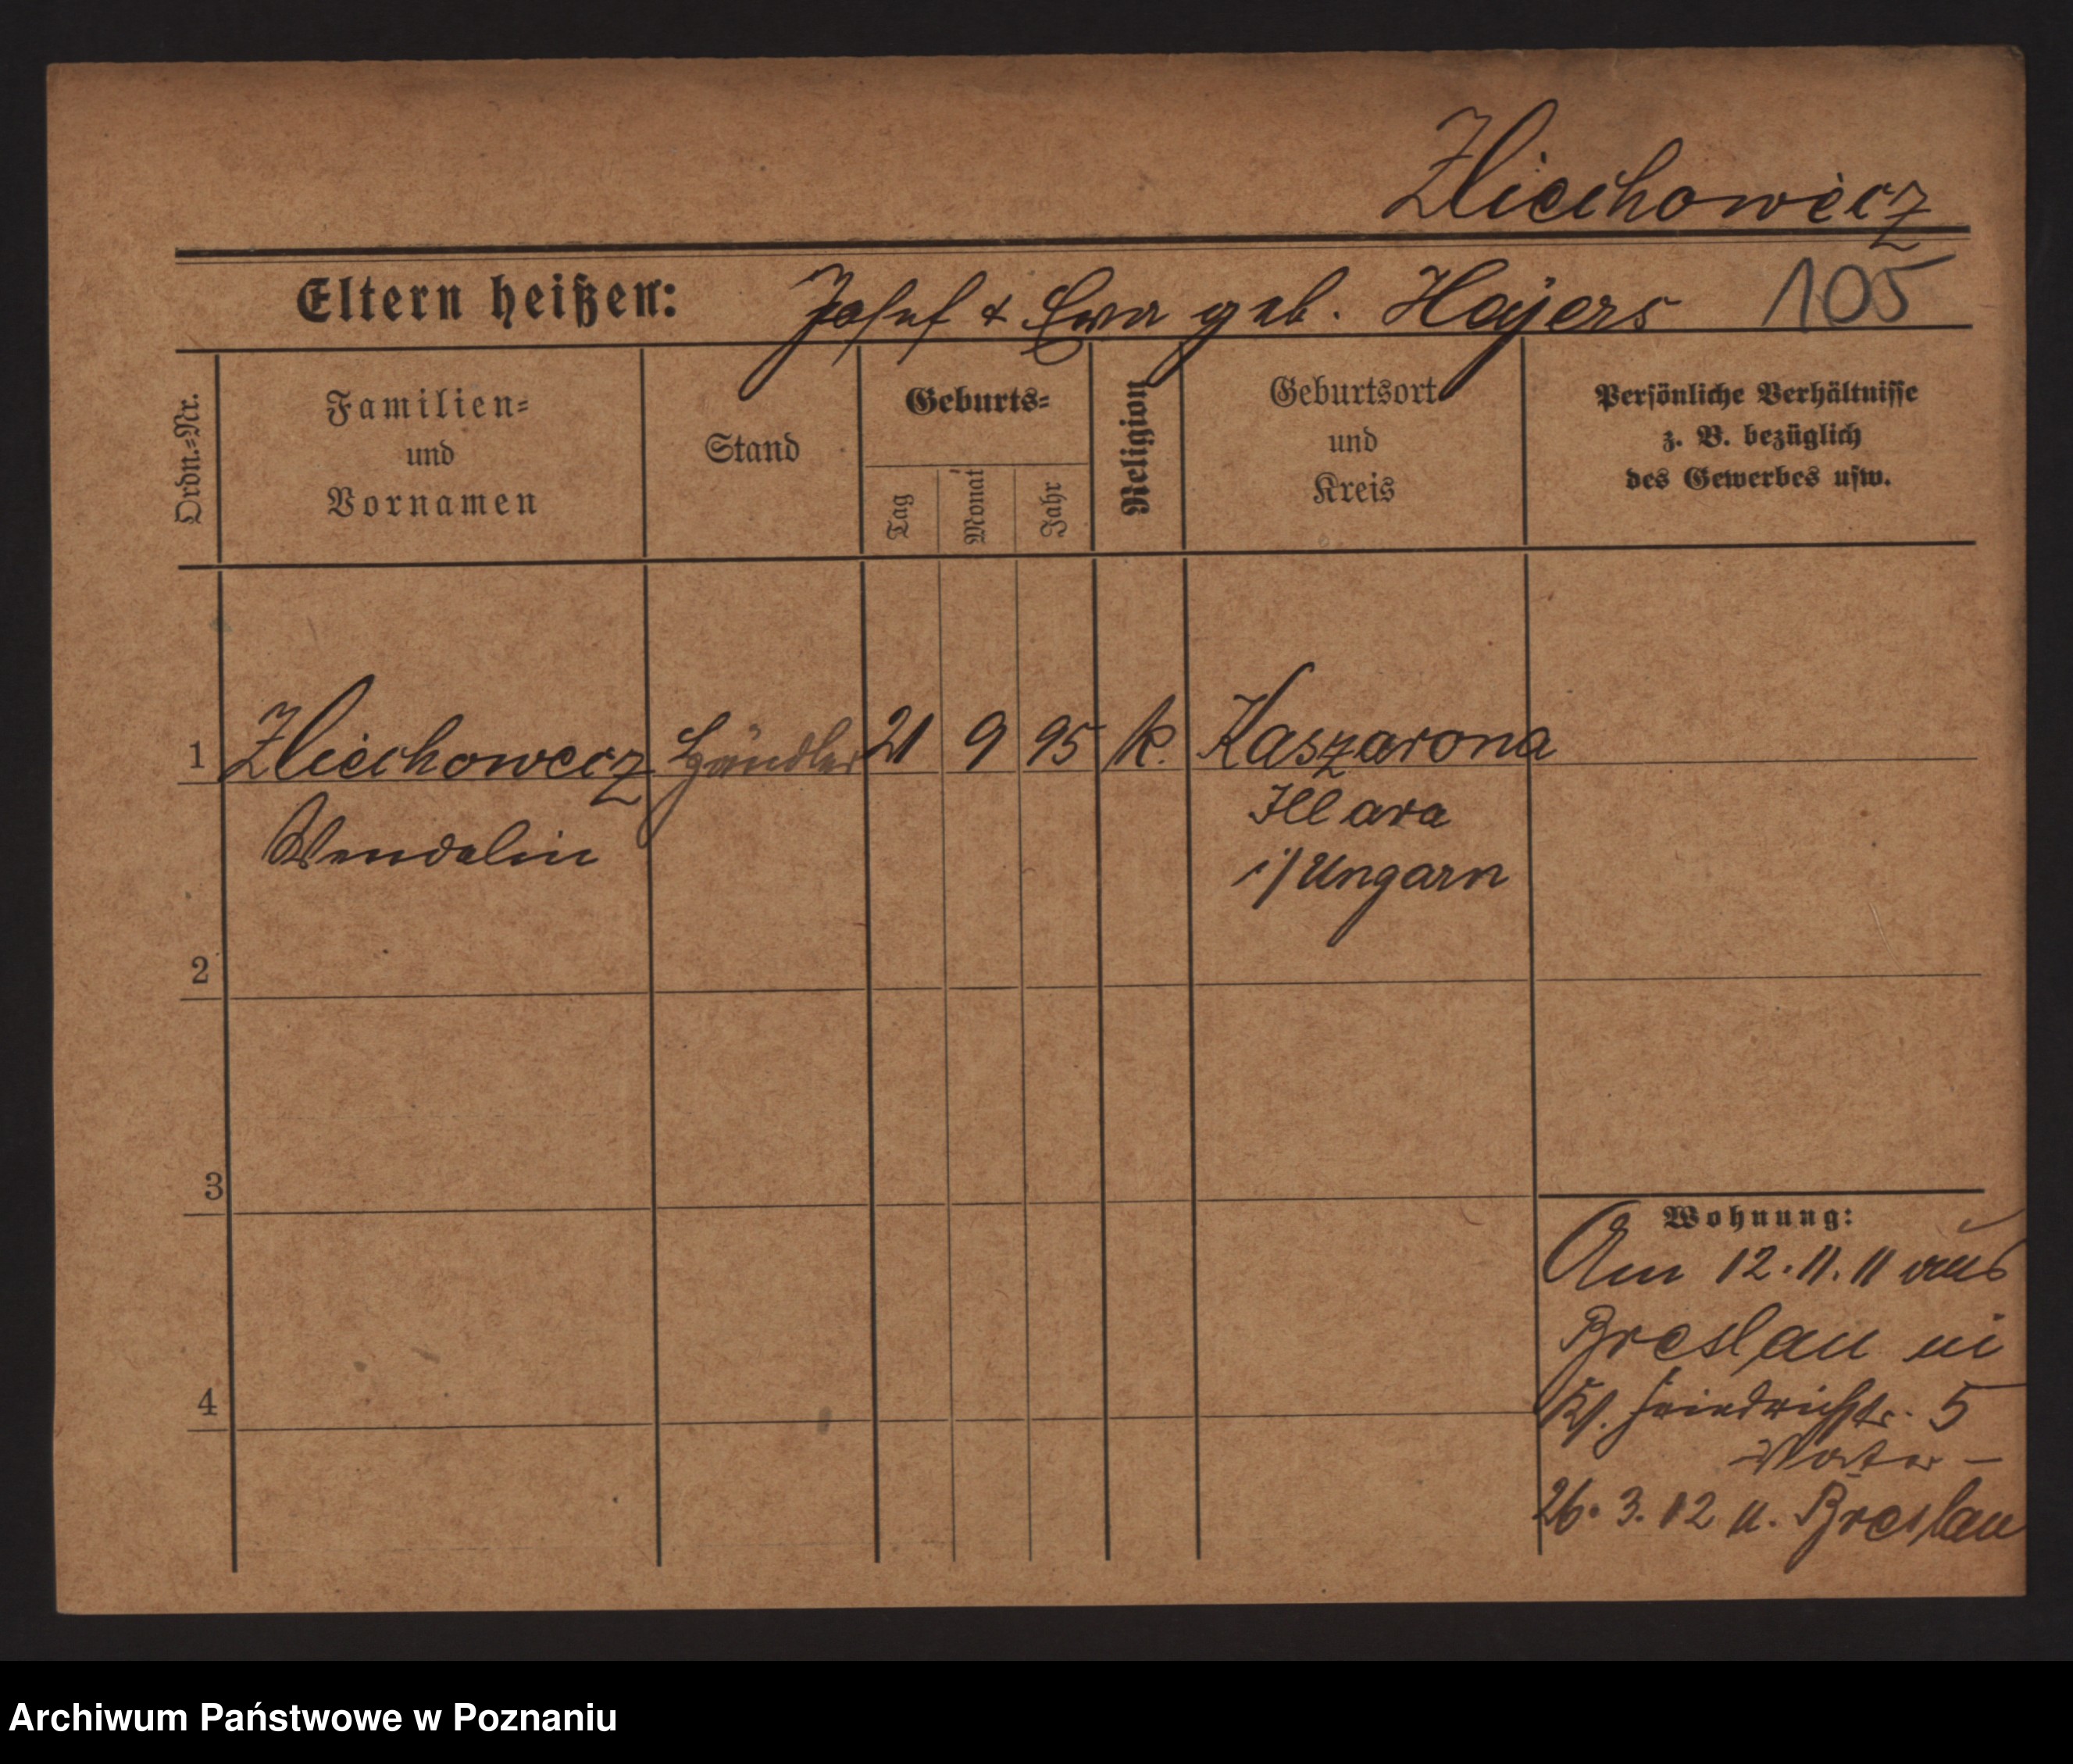 Zliechowicz
Eltern heißen: Josef & Eva geb. Hajers 105
Ordn.=Nr.
Familien=
und
Vornamen
Stand
Geburts=
Tag
Monat
Jahr
Religion
Geburtsort
und
Kreis
Persönliche Verhältnisse
z. B. bezüglich
des Gewerbes usw.
1 Zliechowicz Händler 21 9 95 k. Kaszarona
Wendelin
Illava
i/Ungarn
2
3
4
Wohnung:
Am 12.11.11 aus
Breslau in
Kl. Friedrichstr. 5
Vater –
26.3.12 n. Breslau
Archiwum Państwowe w Poznaniu